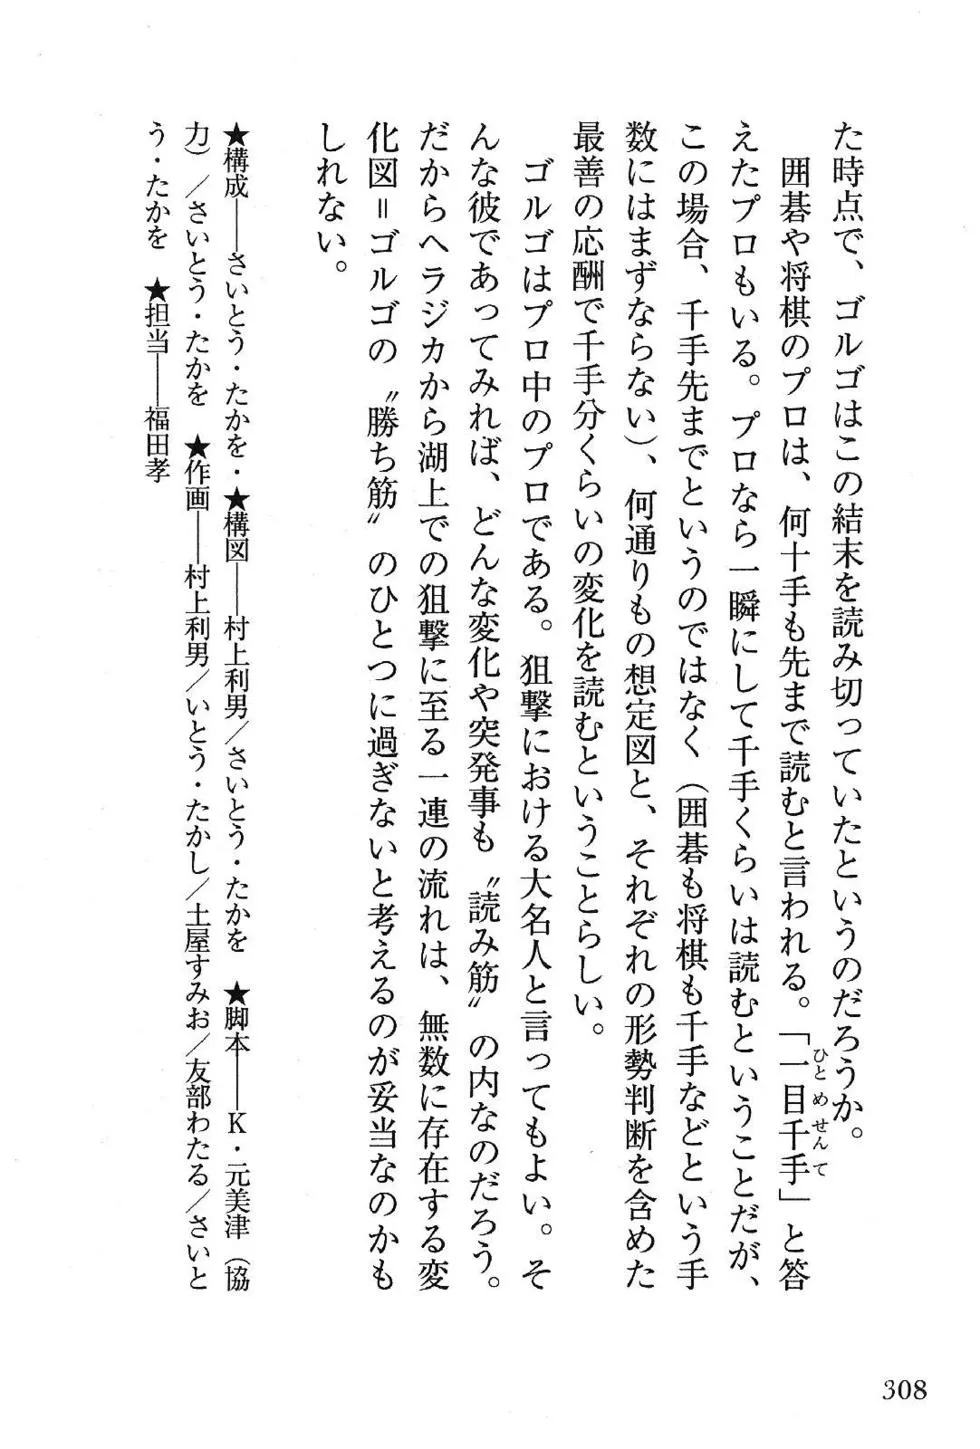 た時点で、ゴルゴはこの結末を読み切っていたというのだろうか。
囲碁や将棋のプロは、何十手も先まで読むと言われる。「一目千手」と答
ひとめせんて
えたプロもいる。プロなら一瞬にして千手くらいは読むということだが、
この場合、千手先までというのではなく（囲碁も将棋も千手などという手
数にはまずならない）、何通りもの想定図と、それぞれの形勢判断を含めた
最善の応酬で千手分くらいの変化を読むということらしい。
ゴルゴはプロ中のプロである。狙撃における大名人と言ってもよい。そ
んな彼であってみれば、どんな変化や突発事も〝読み筋〟の内なのだろう。
だからヘラジカから湖上での狙撃に至る一連の流れは、無数に存在する変
化図＝ゴルゴの〝勝ち筋〟のひとつに過ぎないと考えるのが妥当なのかも
しれない。
★構成――さいとう・たかを・★構図――村上利男／さいとう・たかを ★脚本――K・元美津（協
力）／さいとう・たかを ★作画――村上利男／いとう・たかし／土屋すみお／友部わたる／さいと
う・たかを ★担当――福田孝
308